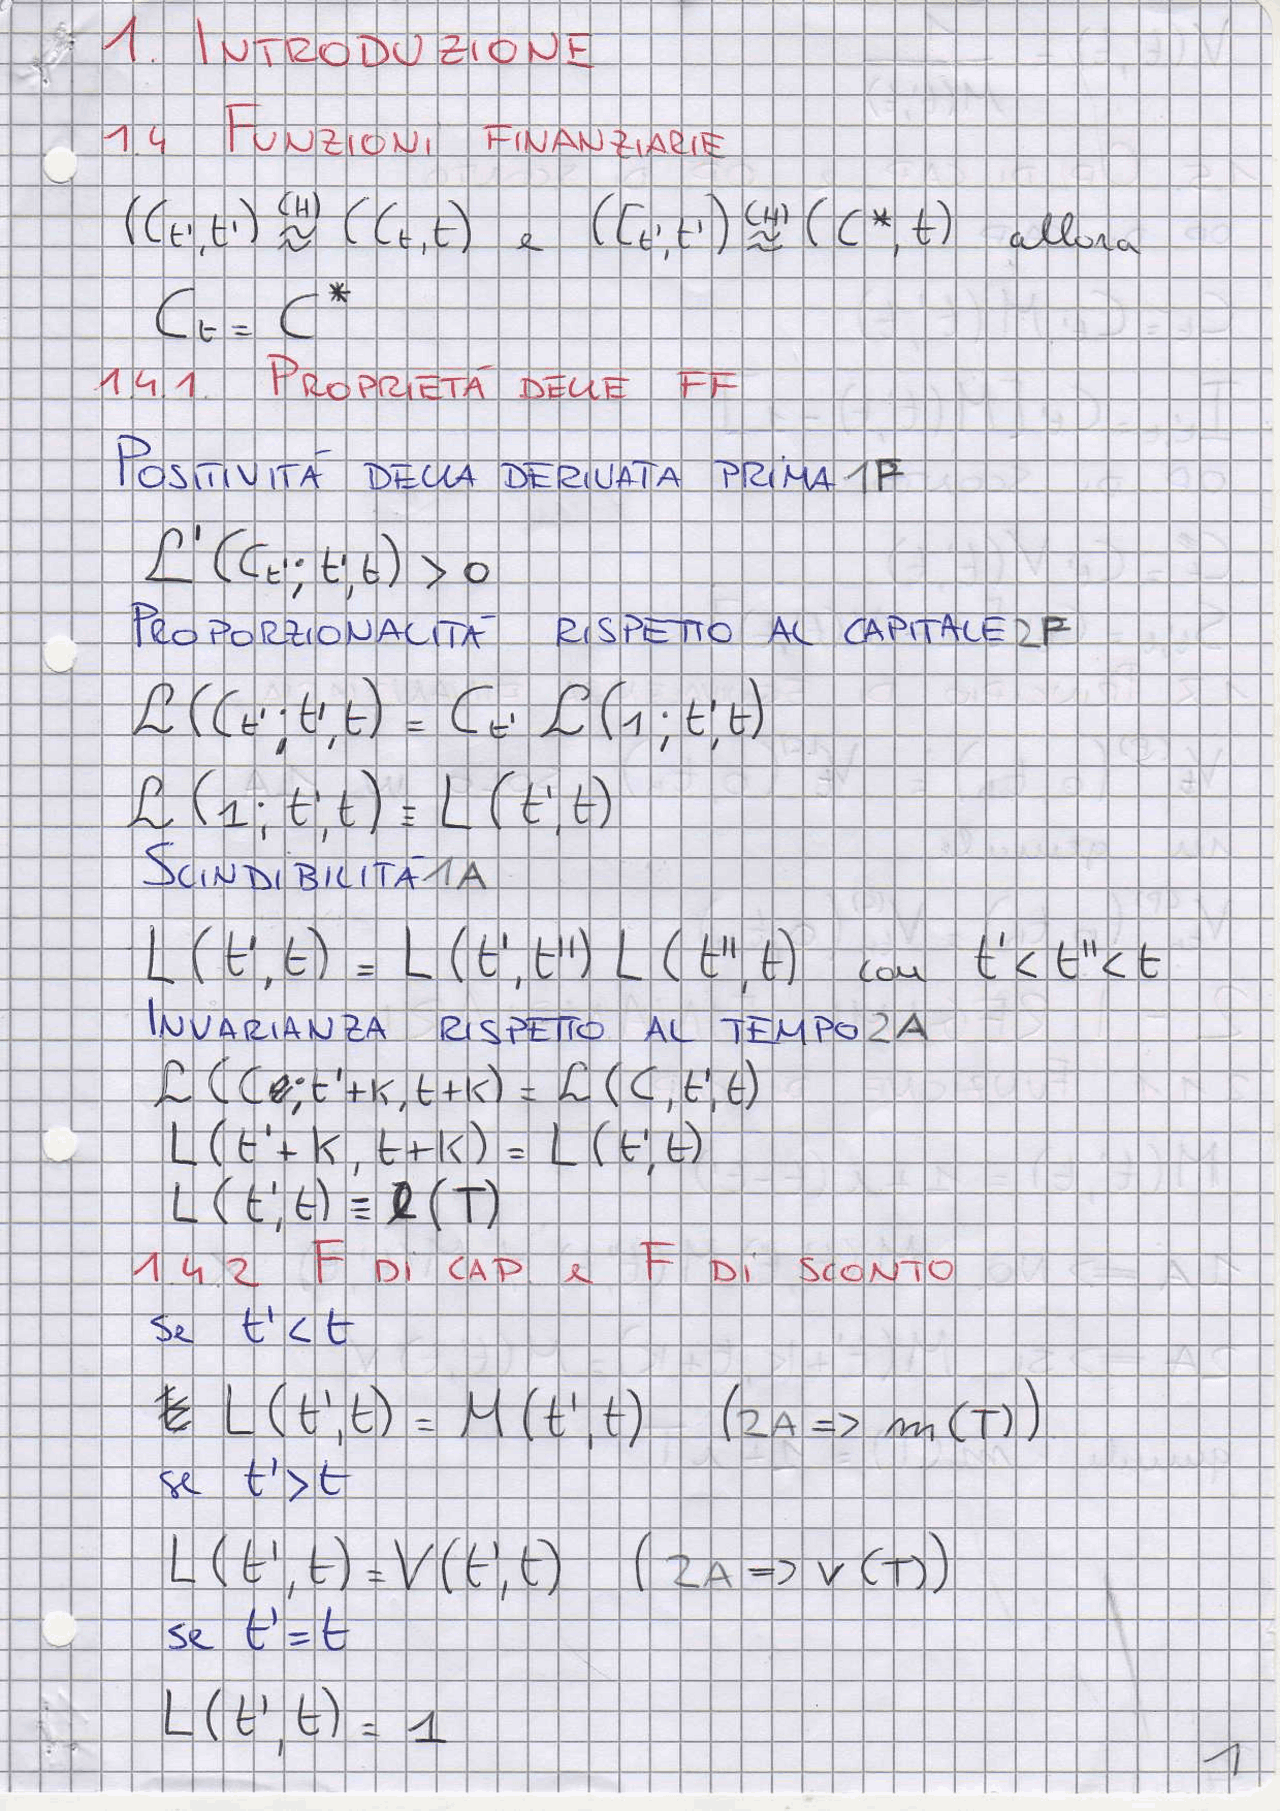 1. INTRODUZIONE
1.4 FUNZIONI FINANZIARIE
(C_t', t') ≈^(H) (C_t, t) e (C_t', t') ≈^(H) (C*, t) allora
C_t = C*
1.4.1. PROPRIETÁ DELLE FF
POSITIVITÁ DELLA DERIVATA PRIMA 1F
ℒ'(C_t'; t', t) > 0
PROPORZIONALITÁ RISPETTO AL CAPITALE 2F
ℒ(C_t'; t', t) = C_t' ℒ(1; t', t)
ℒ(1; t', t) ≡ L(t', t)
SCINDIBILITÁ 1A
L(t', t) = L(t', t'') L(t'', t) con t' < t'' < t
INVARIANZA RISPETTO AL TEMPO 2A
ℒ(C; t'+K, t+K) = ℒ(C, t', t)
L(t'+K, t+K) = L(t', t)
L(t', t) ≡ l(T)
1.4.2 F DI CAP e F DI SCONTO
se t' < t
L(t', t) = M(t', t) (2A => m(T))
se t' > t
L(t', t) = V(t', t) (2A => v(T))
se t' = t
L(t', t) = 1
1